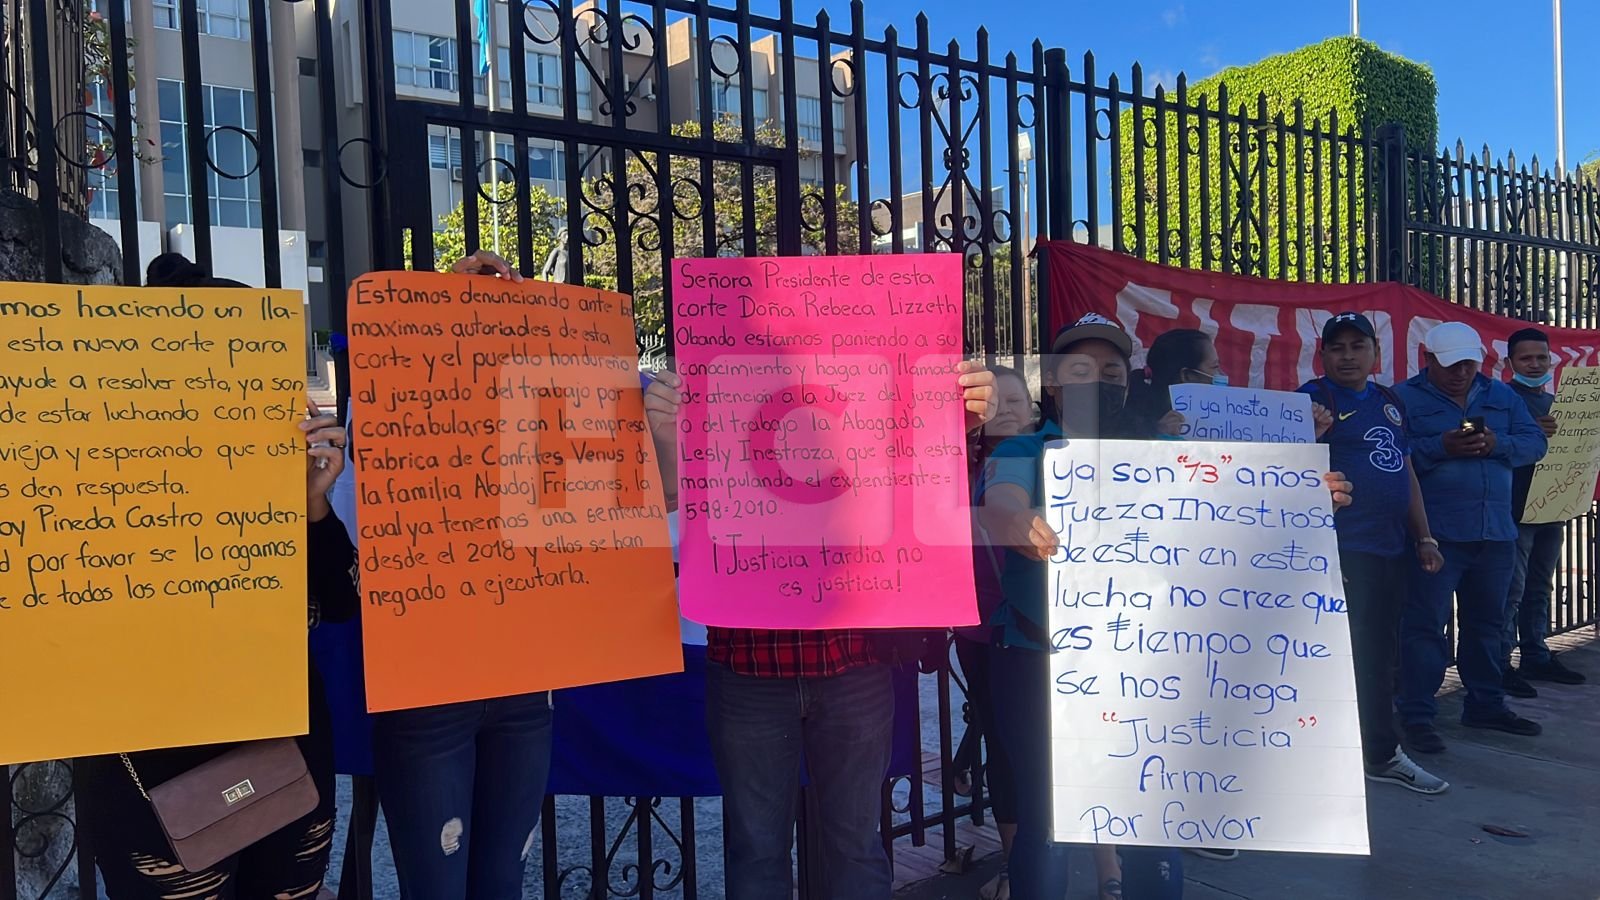 mos haciendo un lla-
esta nueva corte para
ayude a resolver esto, ya son
de estar luchando con est-
vieja y esperando que ust-
s den respuesta.
oy Pineda Castro ayuden-
d por favor se lo rogamos
e de todos los compañeros.
Estamos denunciando ante las
maximas autoriades de esta
corte y el pueblo hondureño
al juzgado del trabajo por
confabularse con la empresa
Fabrica de Confites Venus de
la familia Abudoj Fricciones, la
cual ya tenemos una sentencia
desde el 2018 y ellos se han
negado a ejecutarla.
Señora Presidente de esta
corte Doña Rebeca Lizzeth
Obando estamos poniendo a su
conocimiento y haga un llamado
de atención a la Juez del juzgad-
o del trabajo la Abogada
Lesly Inestroza, que ella esta
manipulando el expendiente=
598=2010.
¡Justicia tardia no
es justicia!
HCH
Si ya hasta las
planillas habia
ya son "13" años
Jueza Inestrosa
de estar en esta
lucha no cree que
es tiempo que
se nos haga
"Justicia"
Firme
Por favor
ya basta
cuales su
en no quere
la empres
iene el di
para Pagar
Justicia
3